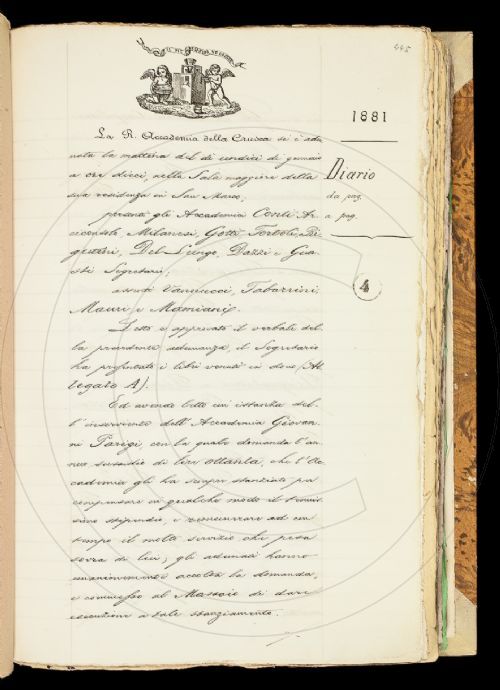 445
IL PIÙ BEL FIOR NE COGLIE
1881
La R. Accademia della Crusca si è adu
nata la mattina del dì undici di gennaio
a ore dieci, nella Sala maggiore della
sua residenza in San Marco;
Diario
da pag.
a pag.
4
presenti gli Accademici Conti, Ar
ciconsolo, Milanesi, Gotti, Tortoli, Ri
gutini, Del Lungo, Dazzi e Gua
sti Segretario;
assenti Vannucci, Tabarrini,
Mauri e Mamiani.
Letto e approvato il verbale del
la precedente adunanza, il Segretario
ha presentato i libri venuti in dono (Al
legato A).
Ed avendo letto un'istanza del
l'inserviente dell'Accademia Giovan
ni Parigi con la quale domanda l'an
nuo sussidio di lire ottanta, che l'Ac
cademia gli ha sempre stanziato per
compensare in qualche modo il tenuis
simo stipendio, e remunerare ad un
tempo il molto servizio che pesa
sovra di lui; gli adunati hanno
unanimemente accolta la domanda,
e commesso al Massaio di dare
esecuzione a tale stanziamento.